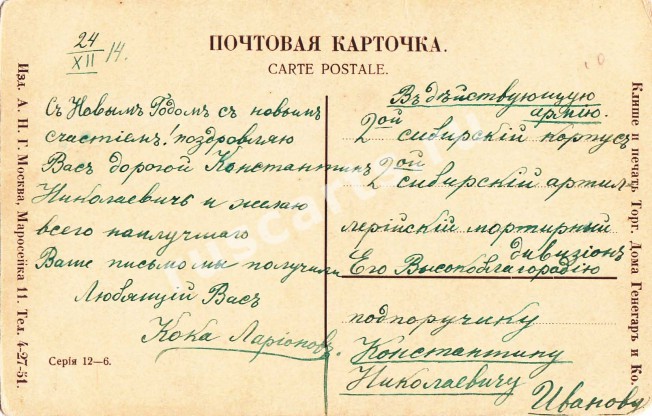 24/XII 14.
ПОЧТОВАЯ КАРТОЧКА.
CARTE POSTALE.
Съ Новымъ Годомъ съ новымъ
счастіемъ! поздровляю
Васъ дорогой Константинъ
Николаевичъ и желаю
всего наилучшаго
Ваше письмо мы получили
Любящій Васъ
Кока Ларіоновъ.
Серія 12—6.
Въ дѣйствующую
армію.
2ой сибирскій корпусъ
2ой сибирскій артил-
лерійскій мортирный
дивизіонъ
Его Высокоблагородію
подпоручику
Константину
Николаевичу
Иванову
Изд. А. Н. Г. Москва, Маросейка 11. Тел. 4-27-51.
Клише и печать Торг. Дома Генегаръ и Ко.
ruscarts.ru